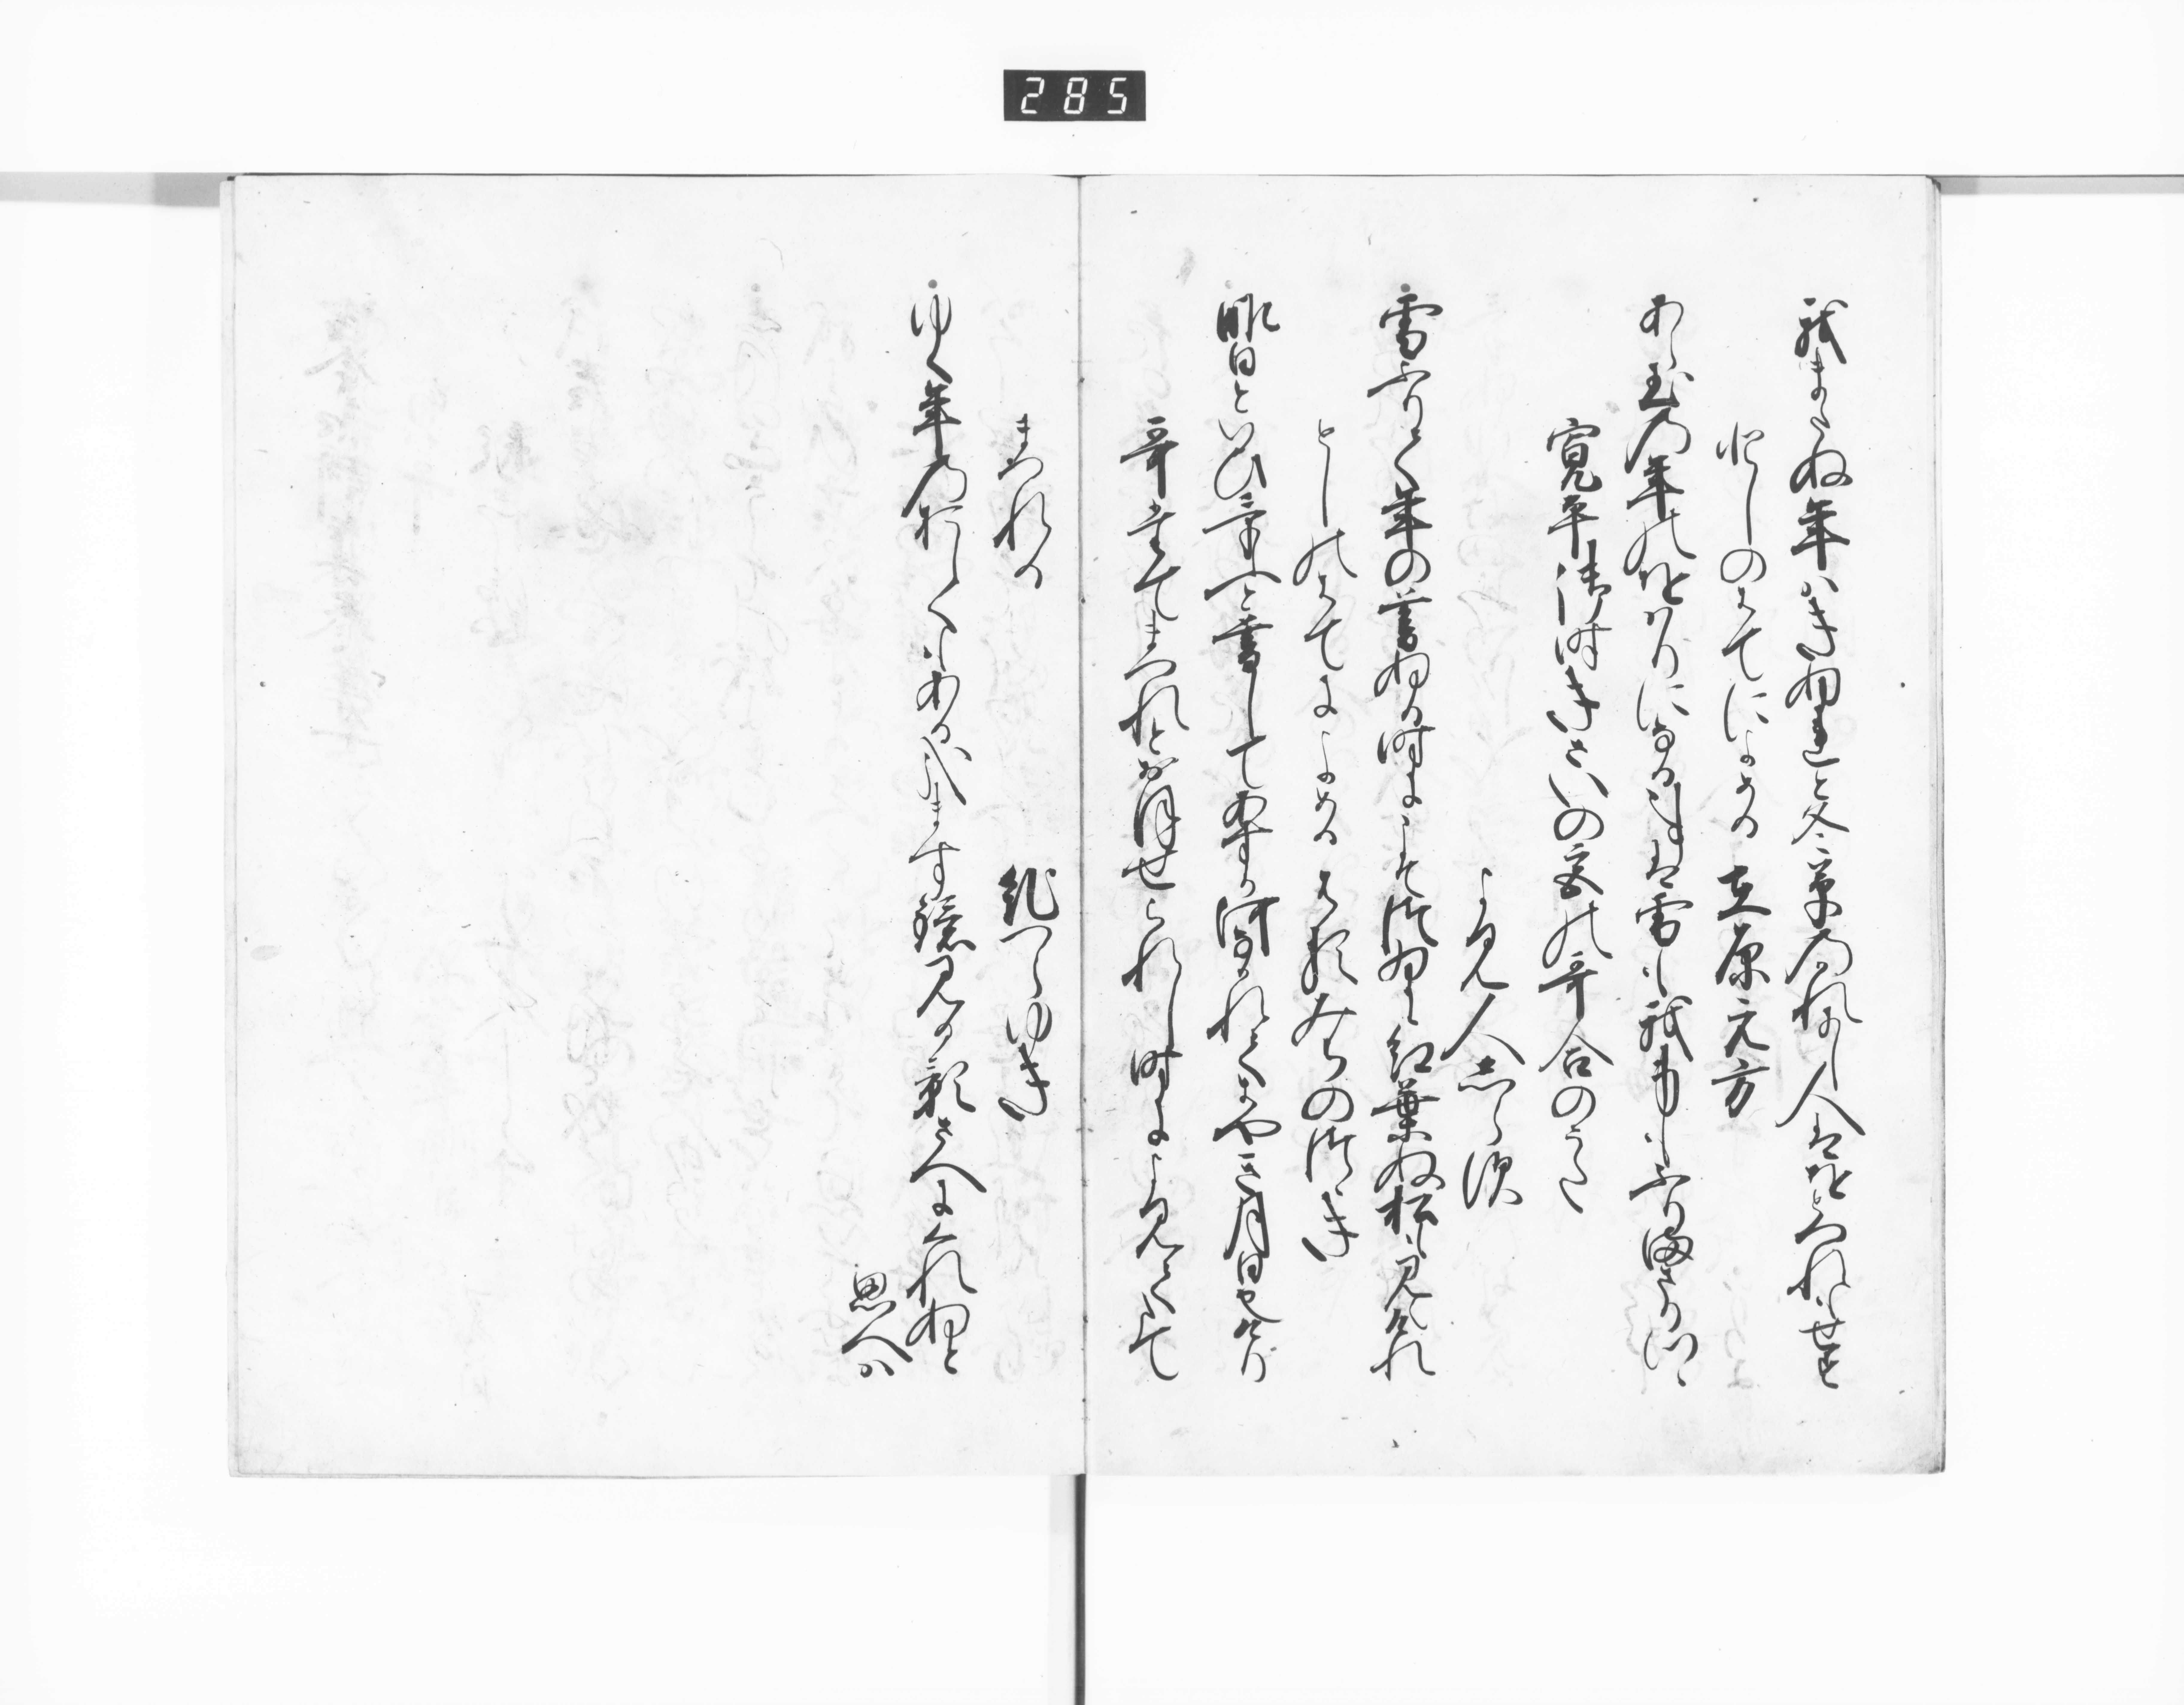 285
我またぬ年はきぬれと冬草のかれにし人はをとつれもせす
としのはてによめる 在原元方
あら玉の年のをはりになることに雪も我身もふりまさりつゝ
寛平御時きさいの宮の哥合のうた
よみ人しらす
雪ふりて年の暮ぬる時にこそつゐに紅葉ぬ松も見えけれ
としのはてによめる はるみちのつらき
昨日といひけふと暮してあすか河なかれてはやき月日也けり
哥たてまつれとおほせられし時によみて
たてまつれる
紀つらゆき
ゆく年のおしくもあるかなます鏡見る影さへにくれぬと
思へは